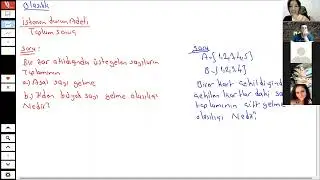 Olasılık
İstenen durum Adeti
Toplum sonuç
Soru:
Bir zar atıldığında üste gelen sayıların
Toplamının
a) Asal sayı gelme
b) 2'den büyük sayı gelme olasılığı
Nedir?
soru
A = {1,2,3,4,5}
B = {1,2,3,4}
Birer kart çekildiğinde
çekilen kartlardaki sa
toplamının çift gelme
olasılığı Nedir?